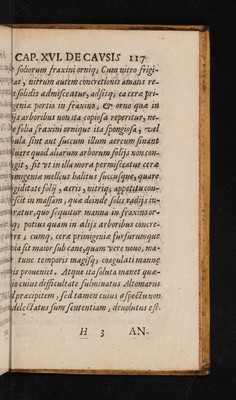 CAP. XVI. DE CAVSIS 117
foliorum fraxini orniq; Cum nitro frigi-
tas, nitrum autem concretionis amans re-
solidis admisceatur, adsitq; ea ceræ pri-
genia portio in fraxino, & orno quæ in
ijs arboribus non ita copiosa reperitur, ne-
folia fraxini ornique ita spongiosa, vel
sint aut succum illum aereum sinant
quod aliarum arborum folijs non con-
git, sit vt in illa mora permisceatur cera
imigenia melleus halitus succusque, quare
rigiditate folij, aeris, nitriq; appetitu con-
escit in massam, quæ deinde solis radijs in-
ratur, quo sequitur manna in fraxino or-
q; potius quam in alijs arboribus concre-
re ; cumq, ceræ primigeniæ furfurumque
pia sit maior sub cane, quam vere nouo, ma-
tunc temporis magisq; coagulati mannæ
is proueniet. Atque ita soluta manet quæ-
io cuius difficultate fulminatus Altomarus
præcipitem, sed tamen cuius aspectu non
delectatus sum sententiam, deuolutus est.
H 3 AN-